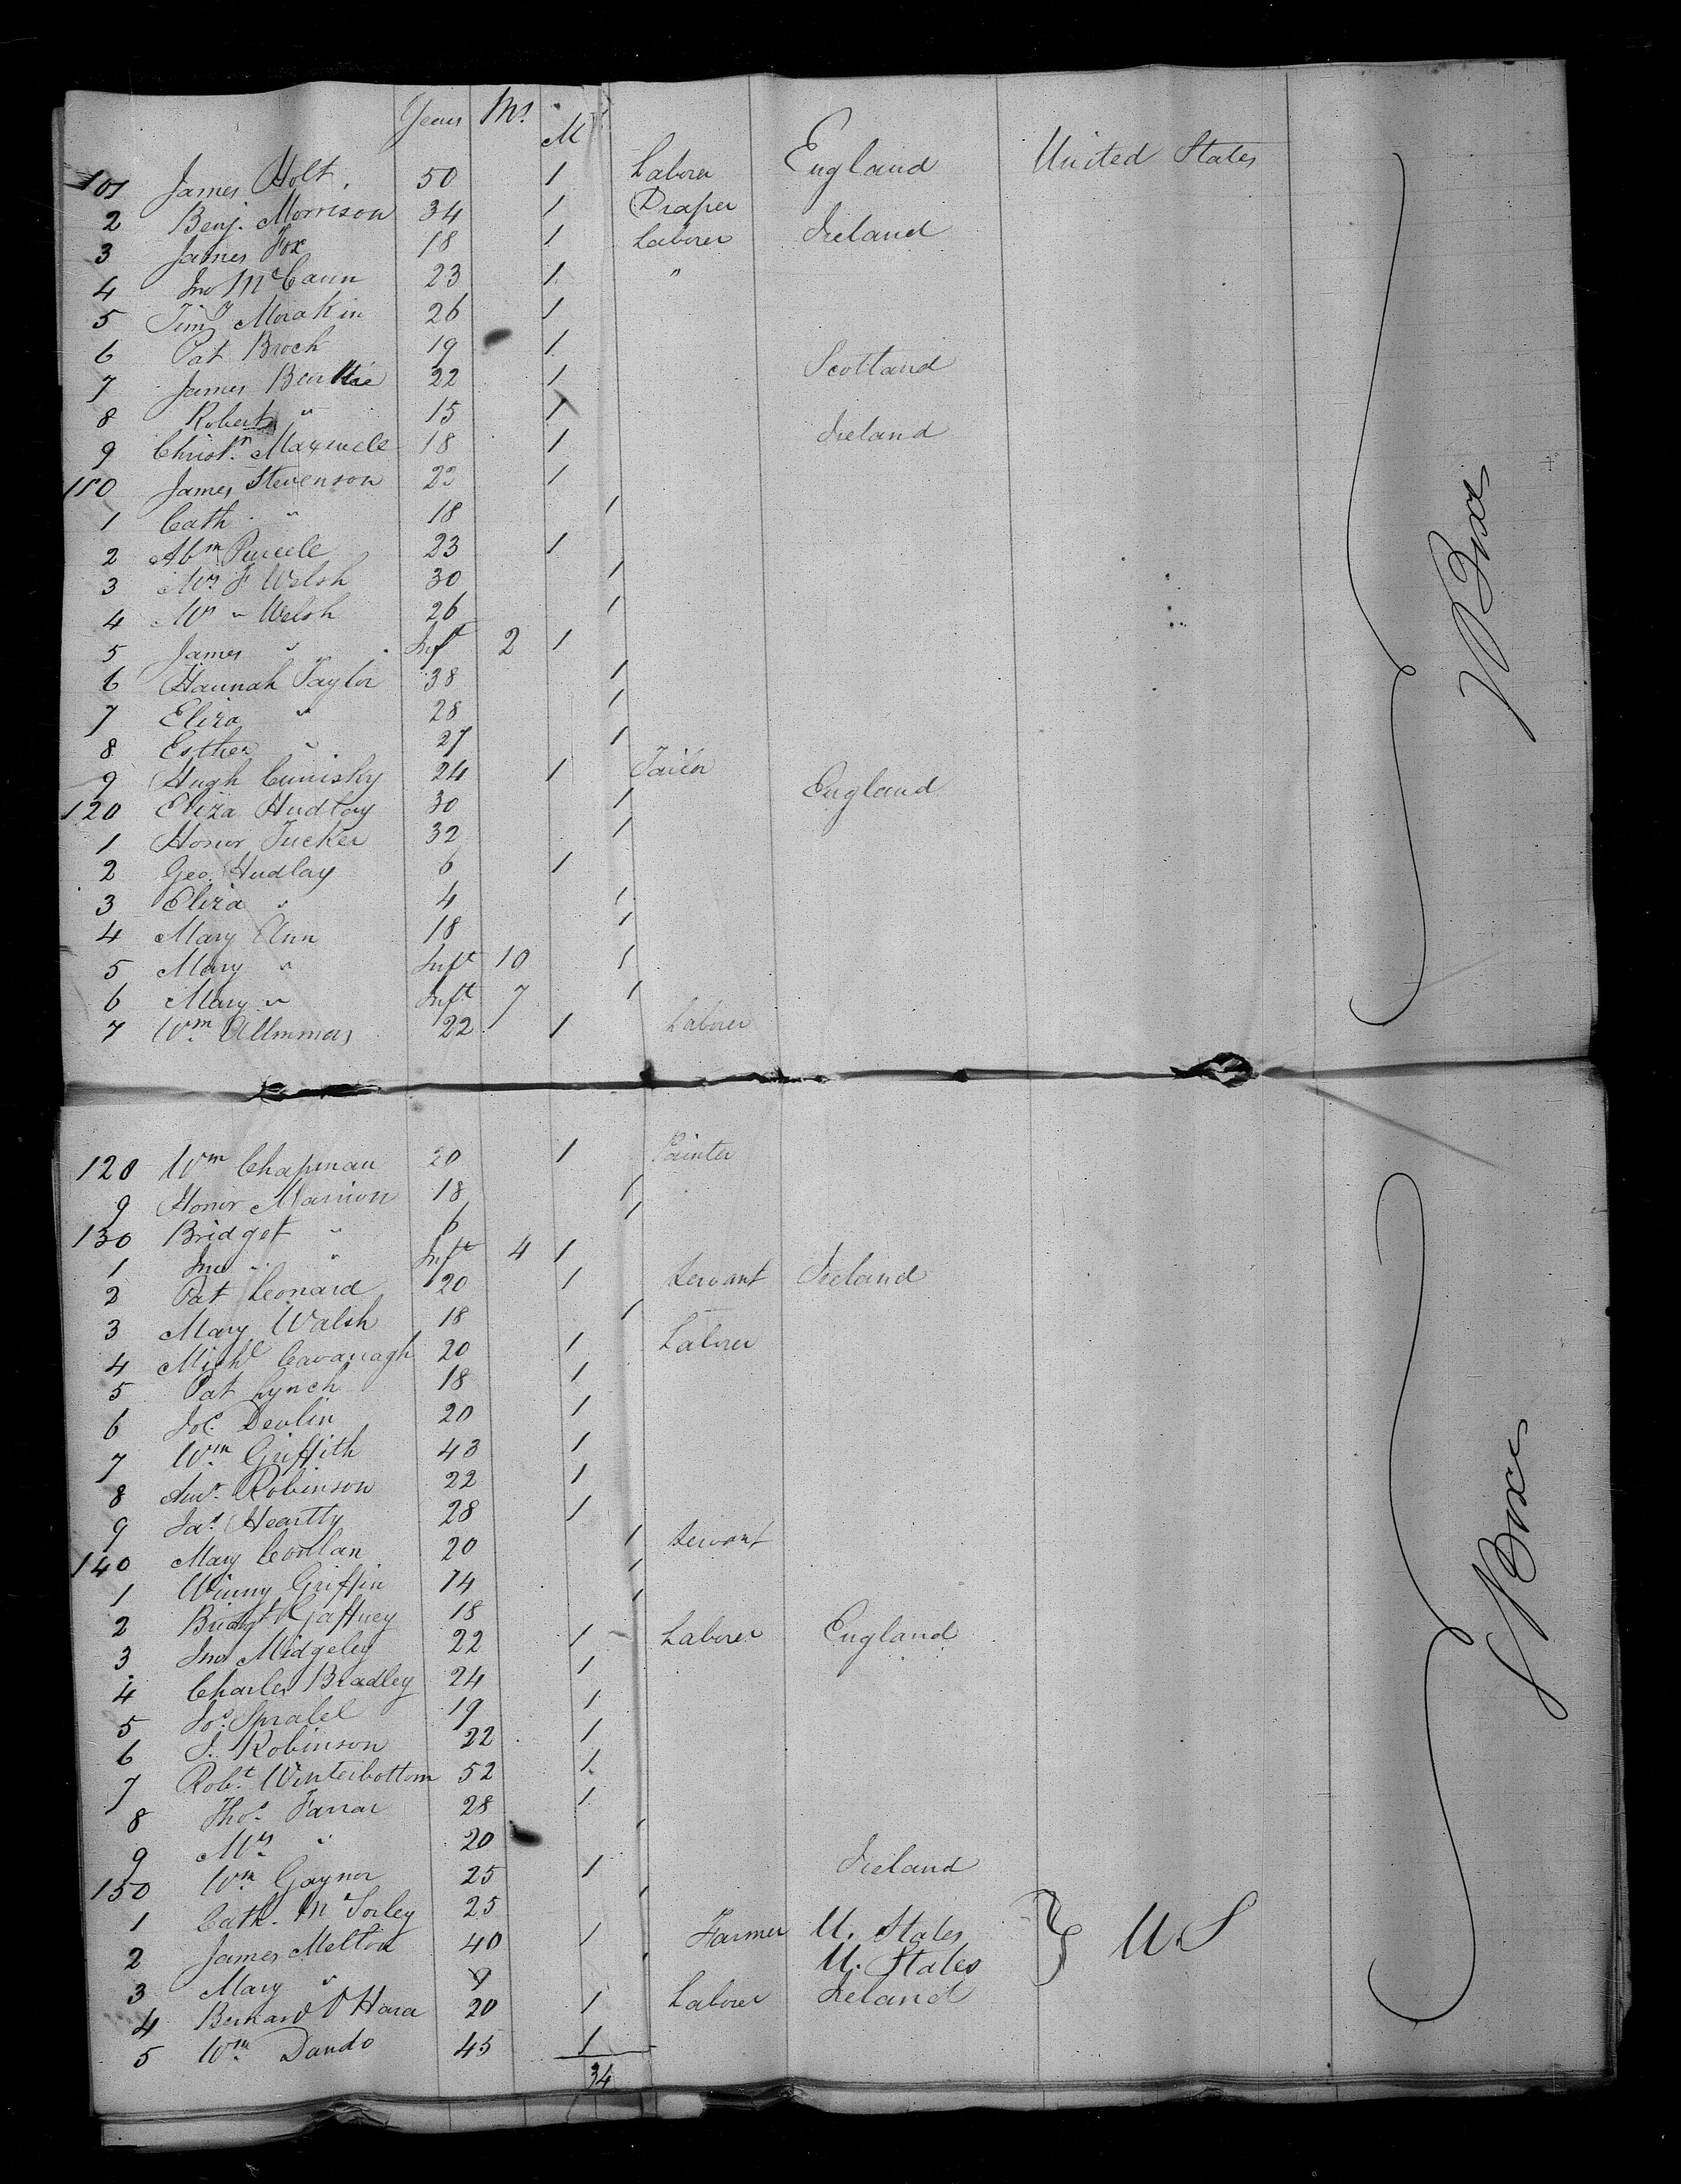 Years Ms M
101 James Holt 50 1 Laborer England United States
2 Benj. Morrison 34 1 Draper
3 James Fox 18 1 Laborer Ireland
4 Jno McCann 23 1 "
5 Timy Morakin 26 1
6 Pat Brock 19 1
7 James 22 1 Scotland
8 Robert " 15 1
9 Christn. Maxwell 18 1 Ireland
110 James Stevenson 23 1
1 Cath " 18 1
2 Abm Purcele 23 1
3 Mrs J Welsh 30 1
4 Mrs " Welsh 26 1
5 James " Inft 2 1
6 Hannah Taylor 38 1
7 Eliza " 28 1
8 Esther " 27 1
9 Hugh 24 1 Tailor
120 Eliza Hudlay 30 1 England
1 Honor Tucker 32 1
2 Geo. Hudlay 6 1
3 Eliza " 4 1
4 Mary Ann 18 1
5 Mary " Inft 10 1
6 Mary " Inft 7 1
7 Wm 22 1 Laborer
W Box
128 Wm Chapman 20 1 Painter
9 Honor Marrion 18 1
130 Bridget " 6 1
1 Jno " " Inft 4 1
2 Pat Leonard 20 1 Servant Ireland
3 Mary Walsh 18 1
4 Michl Cavanagh 20 1 Laborer
5 Pat Lynch 18 1
6 Jos. Devlin 20 1
7 Wm Griffith 43 1
8 Anw. Robinson 22 1
9 Jas. Heartty 28 1
140 Mary Conlan 20 1 Servant
1 Winny Griffin 14 1
2 Bridgt Gaffney 18 1
3 Jno Midgeley 22 1 Laborer England
4 Charles Bradley 24 1
5 Jos. 19 1
6 J. Robinson 22 1
7 Robt. Winterbottom 52 1
8 Thos. Farrar 28 1
9 Mrs " 20 1
150 Wm Gaynor 25 1 Ireland
1 Cath. McSorley 25 1
2 James Melton 40 1 Farmer U. States } U.S
3 Mary " 9 1 U. States
4 Bernard O'Hara 20 1 Laborer Ireland
5 Wm Dando 45 1
34
W Box